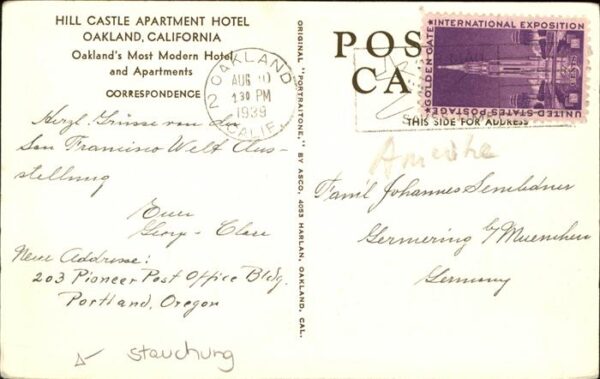 HILL CASTLE APARTMENT HOTEL
OAKLAND, CALIFORNIA
Oakland's Most Modern Hotel
and Apartments
CORRESPONDENCE
OAKLAND
AUG
1 30 PM
1939
CALIF.
2
Herzl. Grüsse von der
San Francisco Welt Aus-
stellung
Euer
Georg - Clare
New Addresse:
203 Pioneer Post Office Bldg.
Portland, Oregon
stauchung
ORIGINAL "PORTRAITONE," BY ASCO, 4053 HARLAN, OAKLAND, CAL.
POS
CA
THIS SIDE FOR ADDRESS
GOLDEN GATE INTERNATIONAL EXPOSITION
UNITED STATES POSTAGE
Famil Johannes
Germering b/Muenchen
Germany